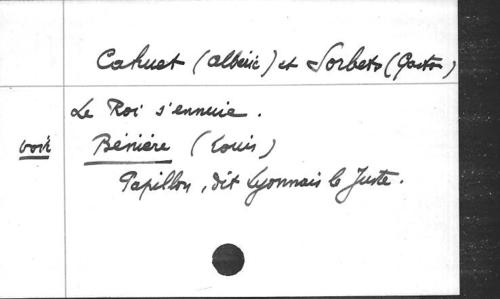 Cahuet (Albéric) et Sorbets (Gaston)
Le Roi s'ennuie.
voir Bénière (Louis)
Papillon, dit Lyonnais le Juste.